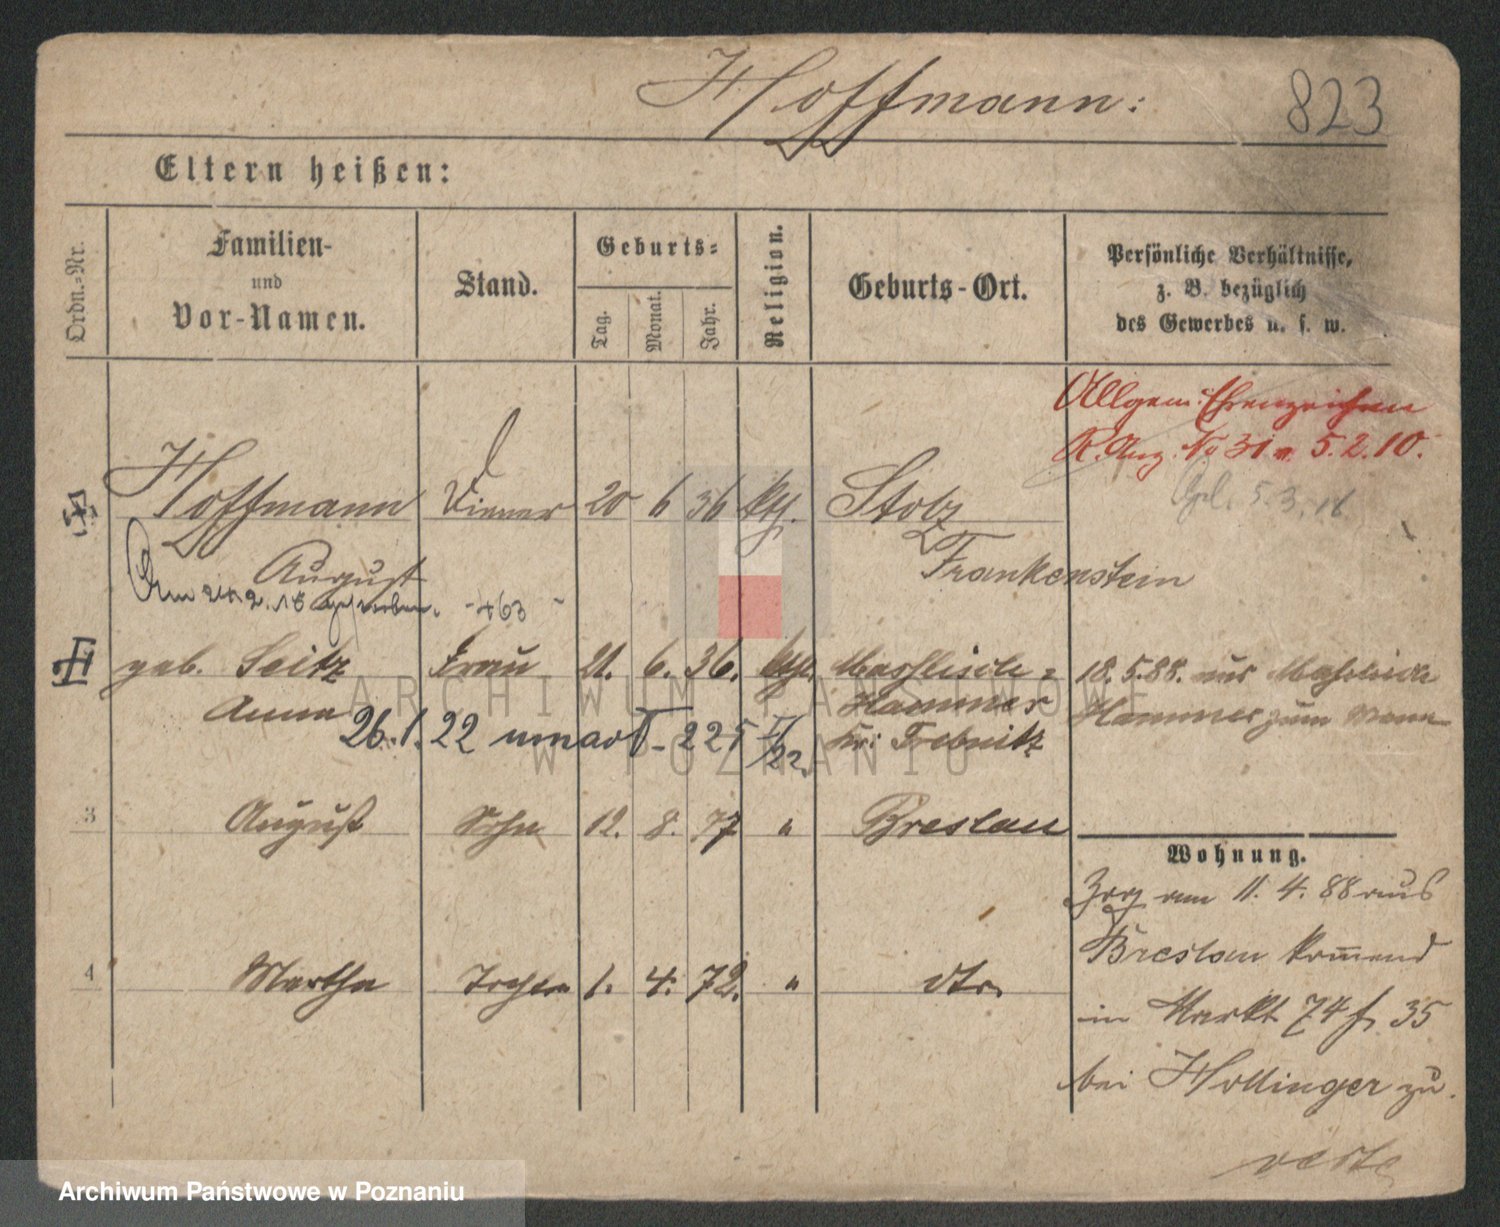 Hoffmann:
823
Eltern heißen:
Ordn.-Nr.
Familien-
und
Vor-Namen.
Stand.
Geburts-
Tag.
Monat.
Jahr.
Religion.
Geburts-Ort.
Persönliche Verhältnisse,
z. B. bezüglich
des Gewerbes u. s. w.
Allgem. Ehrenzeichen
R. Anz. No 31 v. 5.2.10.
5.3.16
Hoffmann Diener 20 6 36 kth. Stolz
August Frankenstein
Am 24.2.18 gestorben. +63
geb. Seitz Frau 21. 6. 36. kth. Masslisch-
Anna Hammer
Kr. Trebnitz
18.5.88. aus Massliсh
Hammer zum Mann
26.1.22 umarł - 225 II/22
3 August Sohn 12. 8. 77 " Breslau
Wohnung.
Zog am 11. 4. 88 aus
Breslau kommend
4 Martha Tochter 1. 4. 72. " dto.
in Markt 74 b. 35
bei Hollinger zu.
verte
ARCHIWUM PAŃSTWOWE
W POZNANIU
Archiwum Państwowe w Poznaniu